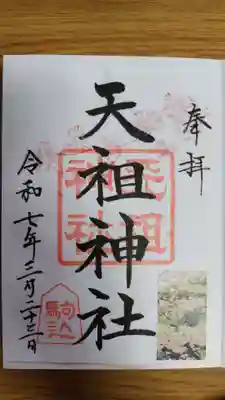 奉拝
天祖神社
天祖神社
令和七年三月二十三日
駒込